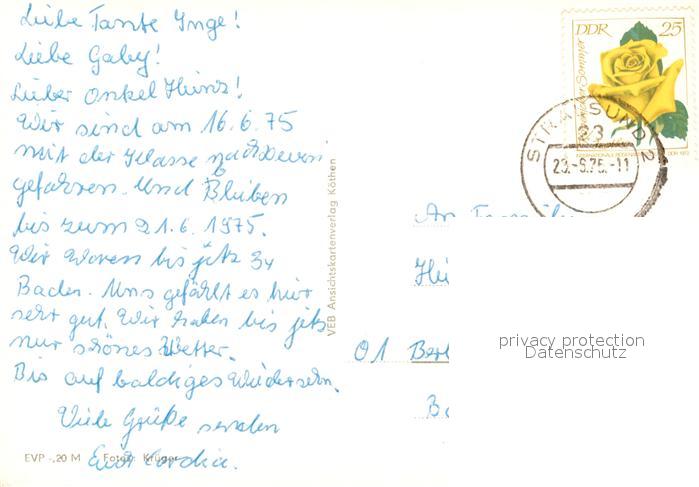 Liebe Tante Inge!
Liebe Gaby!
Lieber Onkel Heinz!
Wir sind am 16.6.75
mit der Klasse nach
gefahren. Und Bleiben
bis zum 21.6.1975.
Wir waren bis jetz
Baden. Uns gefählt es hier
sehr gut. Wir haben bis jetz
nur schönes Wetter.
Bis auf baldiges Wiedersehn.
Viele Grüße senden
EVP -,20 M Fotos: Krüger
VEB Ansichtskartenverlag Köthen
DDR 25
STRALSUND 2
23
23.-6.75.-11
An
01
privacy protection
Datenschutz